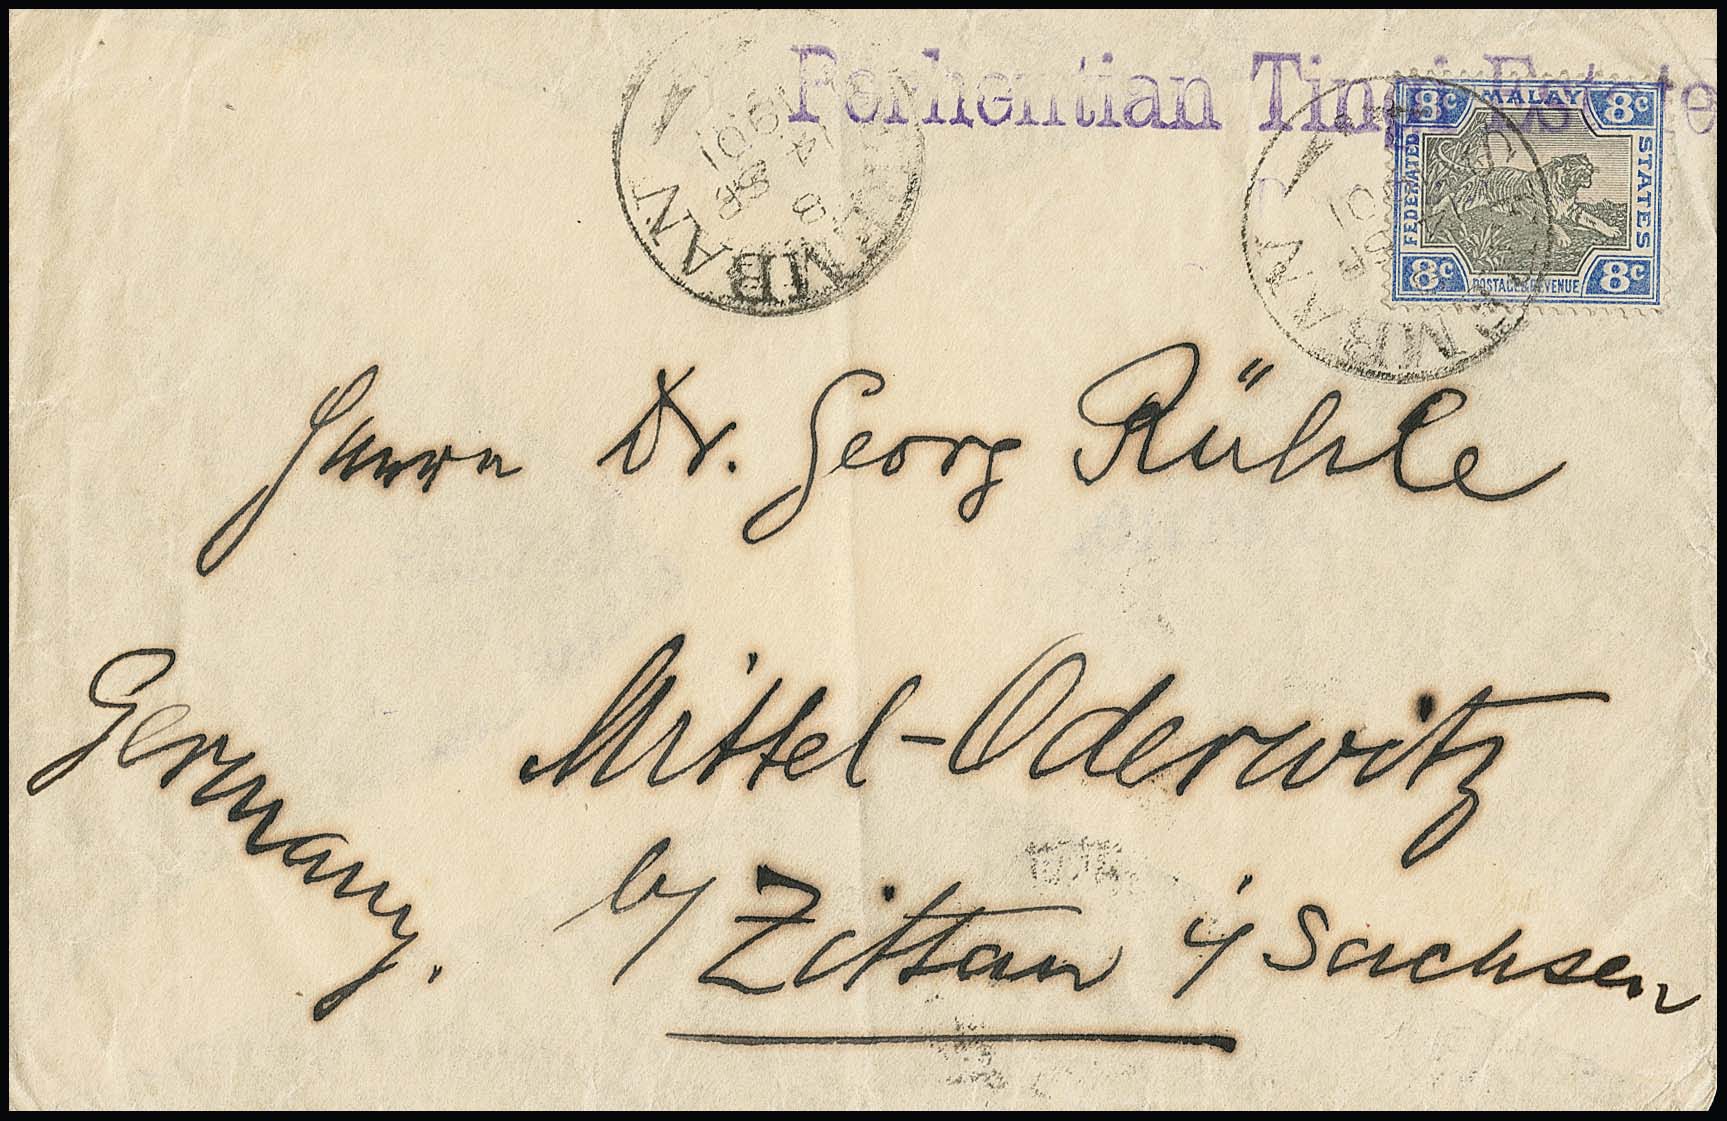 Perhentian Tinggi Estate
8c MALAY 8c
FEDERATED
STATES
8c POSTAGE & REVENUE 8c
SEREMBAN
1901
SEREMBAN
Herrn Dr. Georg Rühle
Mittel-Oderwitz
b/ Zittau i/ Sachsen
Germany.